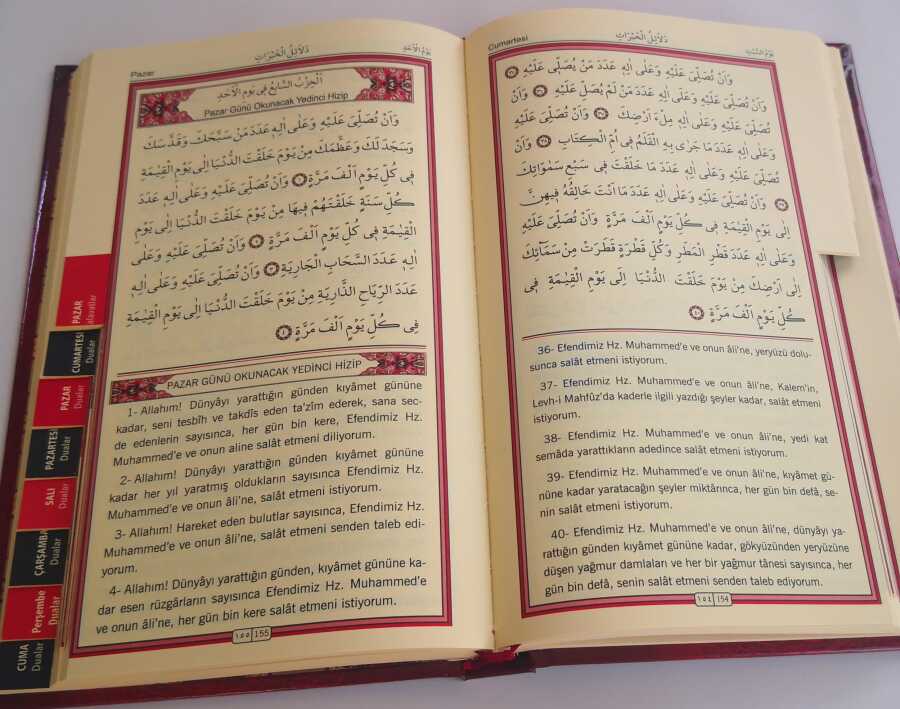 Cumartesi
دَلَائِلُ الْخَيْرَاتِ
يَوْمُ السَّبْتِ
وَاَنْ تُصَلِّىَ عَلَيْهِ وَعَلٰى اٰلِهٖ عَدَدَ مَنْ يُصَلّٖى عَلَيْهِ ﴿٣٤﴾
وَاَنْ تُصَلِّىَ عَلَيْهِ وَعَلٰى اٰلِهٖ عَدَدَ مَنْ لَمْ يُصَلِّ عَلَيْهِ ﴿٣٥﴾ وَاَنْ
تُصَلِّىَ عَلَيْهِ وَعَلٰى اٰلِهٖ مِلْءَ اَرْضِكَ ﴿٣٦﴾ وَاَنْ تُصَلِّىَ عَلَيْهِ
وَعَلٰى اٰلِهٖ عَدَدَ مَا جَرٰى بِهِ الْقَلَمُ فٖى اُمِّ الْكِتَابِ ﴿٣٧﴾ وَاَنْ
تُصَلِّىَ عَلَيْهِ وَعَلٰى اٰلِهٖ عَدَدَ مَا خَلَقْتَ فٖى سَبْعِ سَمٰوَاتِكَ
﴿٣٨﴾ وَاَنْ تُصَلِّىَ عَلَيْهِ وَعَلٰى اٰلِهٖ عَدَدَ مَا اَنْتَ خَالِقُهُ فٖيهِنَّ
اِلٰى يَوْمِ الْقِيٰمَةِ فٖى كُلِّ يَوْمٍ اَلْفَ مَرَّةٍ وَاَنْ تُصَلِّىَ عَلَيْهِ
وَعَلٰى اٰلِهٖ عَدَدَ قَطْرِ الْمَطَرِ وَكُلِّ قَطْرَةٍ قَطَرَتْ مِنْ سَمَآئِكَ
اِلٰى اَرْضِكَ مِنْ يَوْمِ خَلَقْتَ الدُّنْيَا اِلٰى يَوْمِ الْقِيٰمَةِ فٖى
كُلِّ يَوْمٍ اَلْفَ مَرَّةٍ ﴿٤٠﴾
36- Efendimiz Hz. Muhammed'e ve onun âli'ne, yeryüzü dolu-
sunca salât etmeni istiyorum.
37- Efendimiz Hz. Muhammed'e ve onun âli'ne, Kalem'in,
Levh-i Mahfûz'da kaderle ilgili yazdığı şeyler kadar, salât etmeni
istiyorum.
38- Efendimiz Hz. Muhammed'e ve onun âli'ne, yedi kat
semâda yarattıkların adedince salât etmeni istiyorum.
39- Efendimiz Hz. Muhammed'e ve onun âli'ne, kıyâmet gü-
nüne kadar yaratacağın şeyler miktârınca, her gün bin defâ, se-
nin salât etmeni istiyorum.
40- Efendimiz Hz. Muhammed'e ve onun âli'ne, dünyâyı ya-
rattığın günden kıyâmet gününe kadar, gökyüzünden yeryüzüne
düşen yağmur damlaları ve her bir yağmur tânesi sayısınca, her
gün bin defâ, senin salât etmeni senden taleb ediyorum.
١٥٤ 154
Pazar
دَلَائِلُ الْخَيْرَاتِ
يَوْمُ الْاَحَدِ
اَلْحِزْبُ السَّابِعُ فٖى يَوْمِ الْاَحَدِ
Pazar Günü Okunacak Yedinci Hizip
وَاَنْ تُصَلِّىَ عَلَيْهِ وَعَلٰى اٰلِهٖ عَدَدَ مَنْ سَبَّحَكَ وَقَدَّسَكَ
وَسَجَدَ لَكَ وَعَظَّمَكَ مِنْ يَوْمِ خَلَقْتَ الدُّنْيَا اِلٰى يَوْمِ الْقِيٰمَةِ
فٖى كُلِّ يَوْمٍ اَلْفَ مَرَّةٍ ﴿١﴾ وَاَنْ تُصَلِّىَ عَلَيْهِ وَعَلٰى اٰلِهٖ عَدَدَ
كُلِّ سَنَةٍ خَلَقْتَهُمْ فٖيهَا مِنْ يَوْمِ خَلَقْتَ الدُّنْيَا اِلٰى يَوْمِ
الْقِيٰمَةِ فٖى كُلِّ يَوْمٍ اَلْفَ مَرَّةٍ ﴿٢﴾ وَاَنْ تُصَلِّىَ عَلَيْهِ وَعَلٰى
اٰلِهٖ عَدَدَ السَّحَابِ الْجَارِيَةِ ﴿٣﴾ وَاَنْ تُصَلِّىَ عَلَيْهِ وَعَلٰى اٰلِهٖ
عَدَدَ الرِّيَاحِ الذَّارِيَةِ مِنْ يَوْمِ خَلَقْتَ الدُّنْيَا اِلٰى يَوْمِ الْقِيٰمَةِ
فٖى كُلِّ يَوْمٍ اَلْفَ مَرَّةٍ ﴿٤﴾
PAZAR GÜNÜ OKUNACAK YEDİNCİ HİZİP
1- Allahım! Dünyâyı yarattığın günden kıyâmet gününe
kadar, seni tesbîh ve takdîs eden ta'zîm ederek, sana sec-
de edenlerin sayısınca, her gün bin kere, Efendimiz Hz.
Muhammed'e ve onun aline salât etmeni diliyorum.
2- Allahım! Dünyâyı yarattığın günden kıyâmet gününe
kadar her yıl yaratmış oldukların sayısınca Efendimiz Hz.
Muhammed'e ve onun âli'ne, salât etmeni istiyorum.
3- Allahım! Hareket eden bulutlar sayısınca, Efendimiz Hz.
Muhammed'e ve onun âli'ne, salât etmeni senden taleb edi-
yorum.
4- Allahım! Dünyâyı yarattığın günden, kıyâmet gününe ka-
dar esen rüzgârların sayısınca Efendimiz Hz. Muhammed'e
ve onun âli'ne, her gün bin kere salât etmeni istiyorum.
١٥٥ 155
PAZAR
CUMARTESİ
Dualar
PAZAR
Dualar
PAZARTESİ
Dualar
SALI
Dualar
ÇARŞAMBA
Dualar
Perşembe
Dualar
CUMA
Dualar